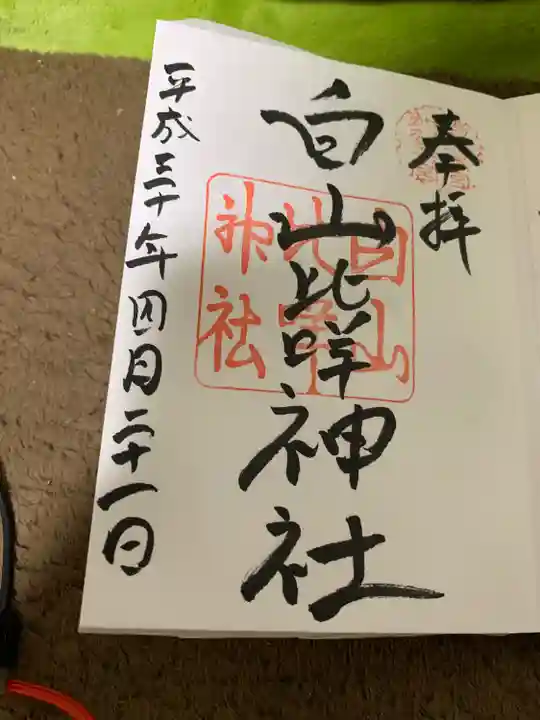 奉拝
白山比咩神社
白山
比咩
神社
平成三十年四月二十一日